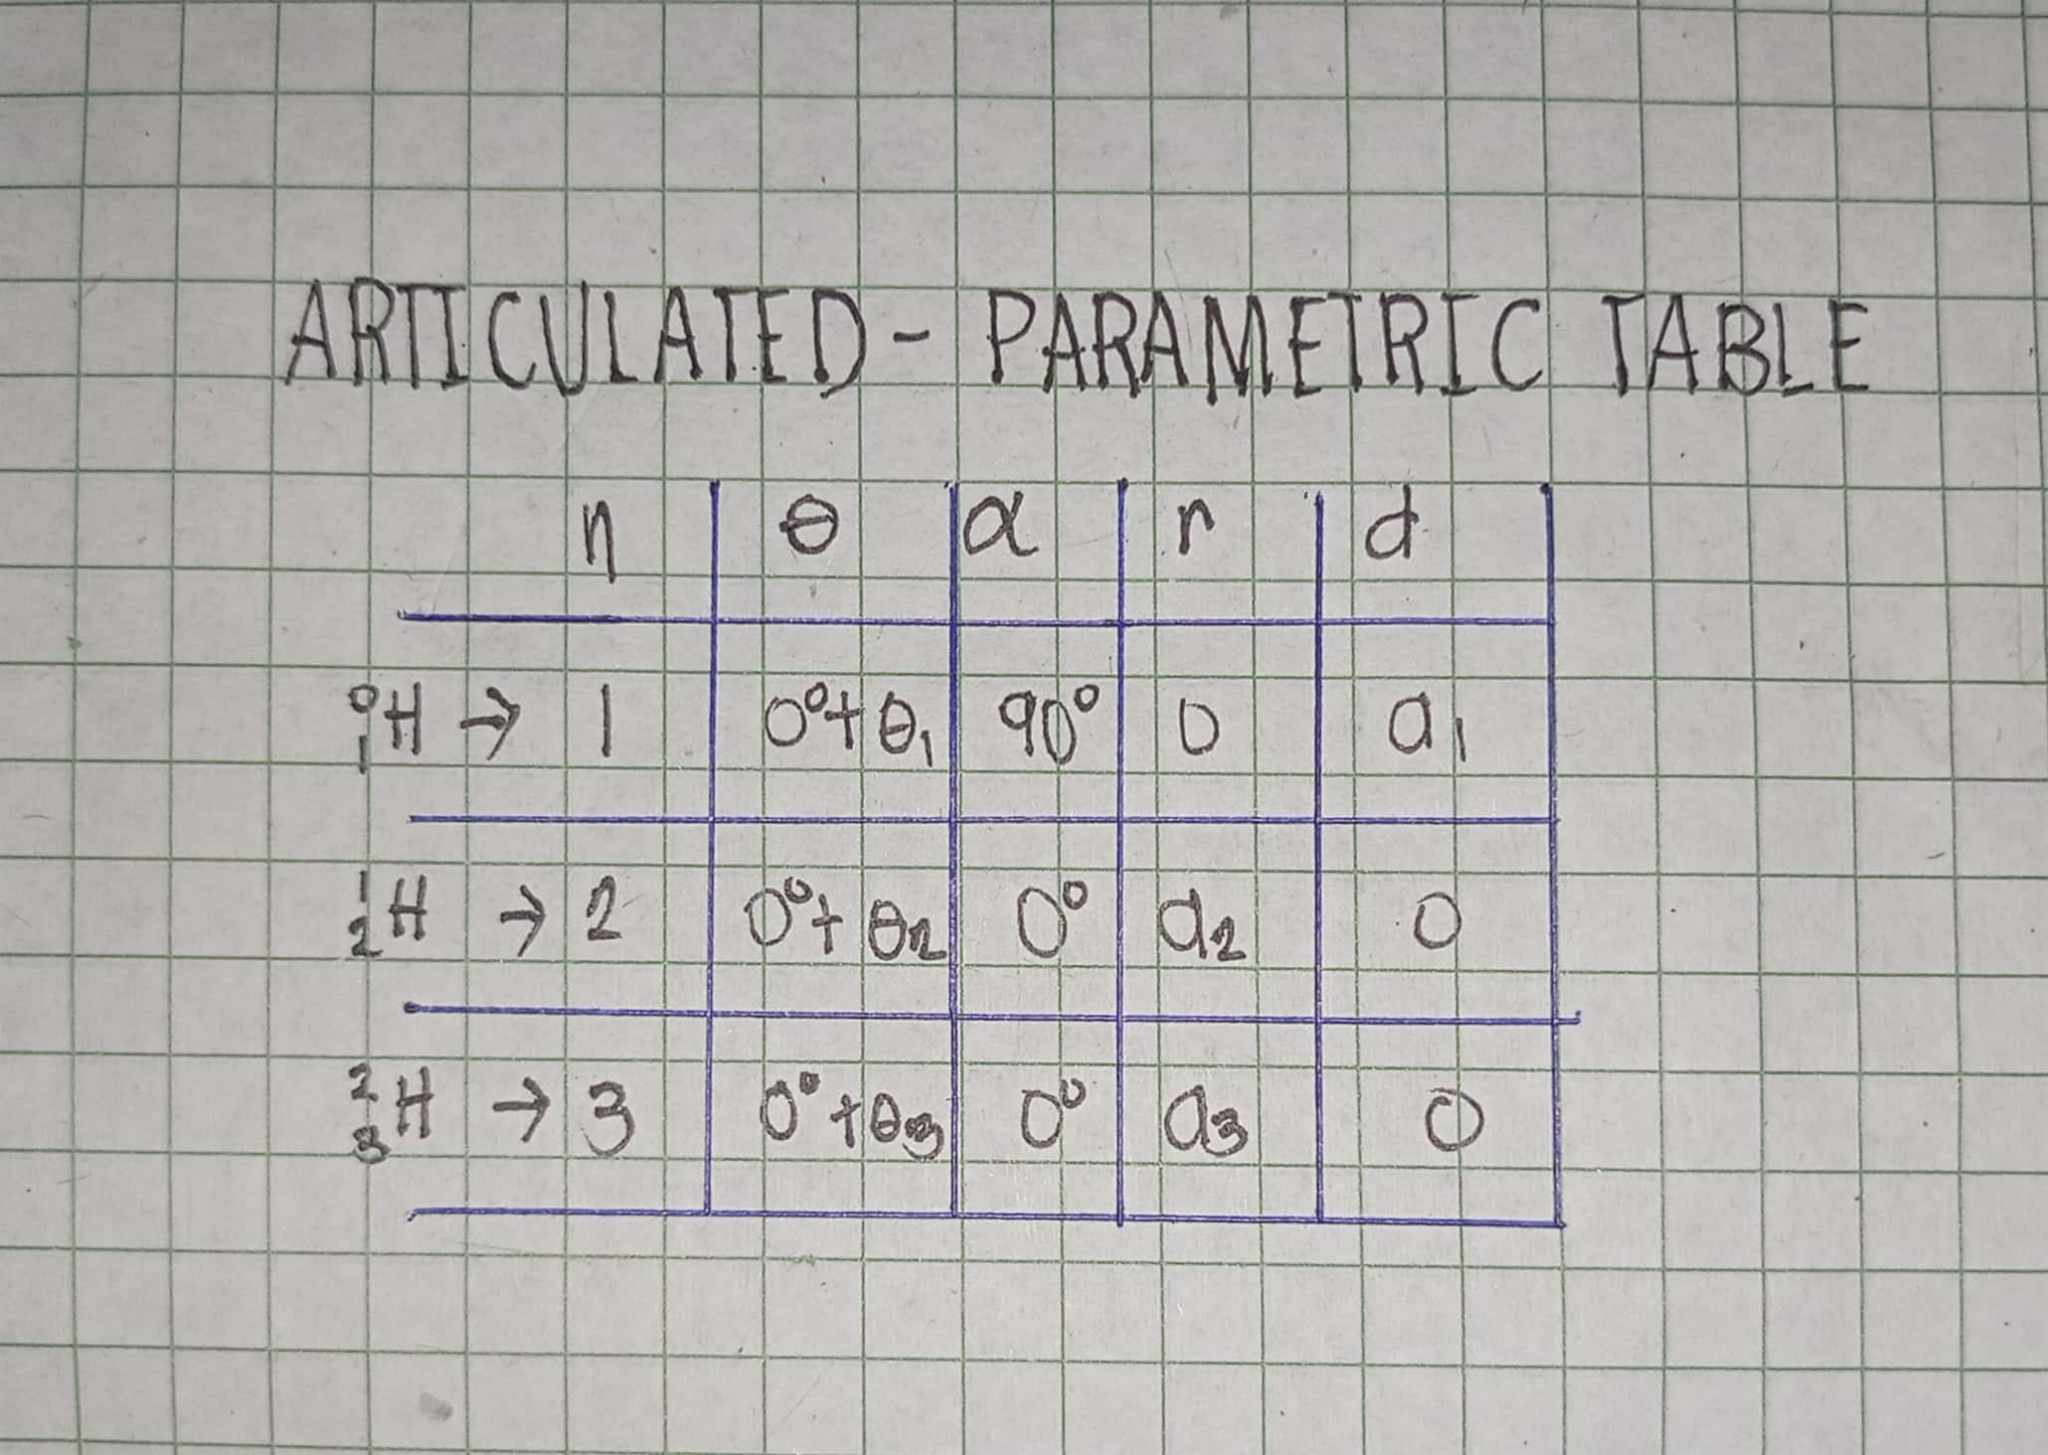 ARTICULATED - PARAMETRIC TABLE
n θ α r d
⁰₁H → 1 0°+θ₁ 90° 0 a₁
¹₂H → 2 0°+θ₂ 0° a₂ 0
²₃H → 3 0°+θ₃ 0° a₃ 0